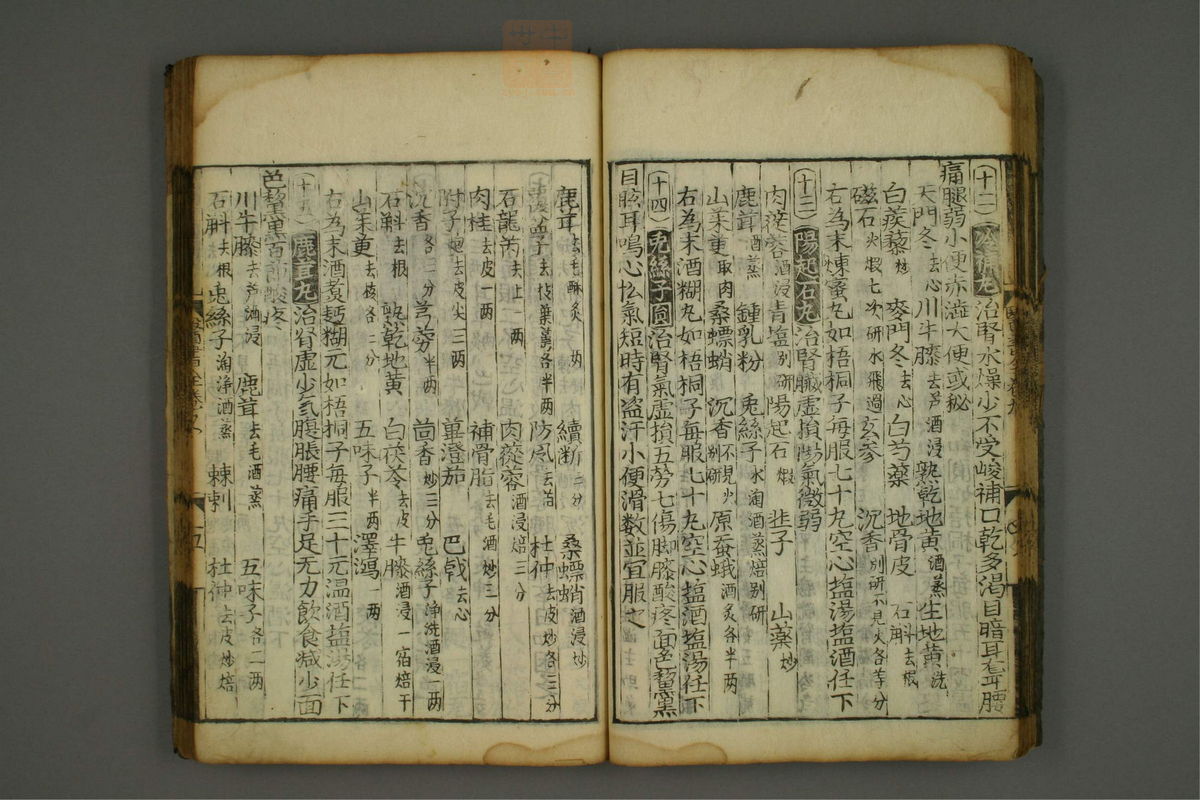 (十二)冷補丸治腎水燥少不受峻補口乾多渴目暗耳聾腰
痛腿弱小便赤澁大便或秘
天門冬去心川牛膝去芦酒浸熟乾地黄酒蒸生地黄洗
白蒺藜炒麥門冬去心白芍藥地骨皮石斛去根
磁石火煅七次研水飛過玄參沉香別研不見火各等分
右為末煉蜜丸如梧桐子每服七十丸空心塩湯塩酒任下
(十三)陽起石丸治腎臟虛損陽氣微弱
肉蓯蓉酒浸青塩別研陽起石煅韭子山藥炒
鹿茸酒蒸鍾乳粉兎絲子水淘酒蒸焙別研
山茱萸取肉桑螵蛸沉香不見火別研原蚕蛾酒炙各半两
右為末酒糊丸如梧桐子每服七十丸空心塩酒塩湯任下
(十四)兎絲子圓治腎氣虛損五勞七傷脚膝酸疼面色黧黑
目眩耳鳴心忪氣短時有盗汗小便滑数並宜服之
鹿茸去毛酥炙一两續斷三分桑螵蛸酒浸炒
覆盆子去枝葉萼各半两防風去芦杜仲去皮炒各三分
石龍芮去土一两肉蓯蓉酒浸焙三分
肉桂去皮一两補骨脂去毛酒炒三分
附子炮去皮尖三两蓽澄茄巴戟去心
沉香各三分芎藭半两茴香炒三分兎絲子淨洗酒浸一两
石斛去根熟乾地黄白茯苓去皮牛膝酒浸一宿焙干
山茱萸去核各三分五味子半两澤瀉一两
右為末酒煮麪糊元如梧桐子每服三十元温酒塩湯任下
(十五)鹿茸丸治腎虛少氣腹脹腰痛手足无力飲食减少面
色黧黑百節酸疼
川牛膝去芦酒浸鹿茸去毛酒蒸五味子各二两
石斛去根兎絲子淘淨酒蒸棘刺杜仲去皮炒焙